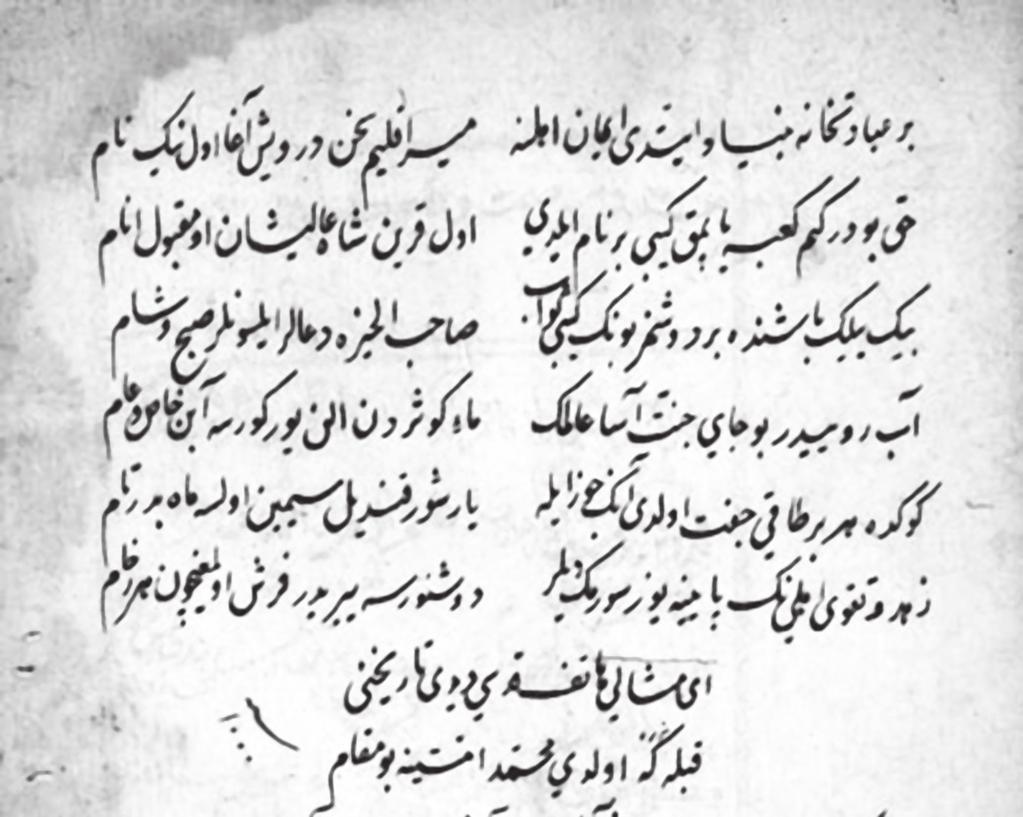 بر عبادتخانه بنیاد ایتدی ایمان اهلنه میر اقلیم سخن درویش آغا اول نیک نام
حق بودر کیم کعبه یاپمق کبی بر نام ایلدی اول قرین شاه عالیشان او مقبول انام
بیک بیلیک باشنده بر دوشمز بونک کبی ثواب صاحب الخیره دعالر ایلسونلر صبح و شام
آب رو میدر بو جای جنت آسا عالمک ماء کوثردن الن یور کورسه آبن خاص و عام
کوکده هر بر طاقی جفت اولدی آنک جوزا یله یارشور قندیل سیمین اولسه ماه بدر تام
زهد و تقوی اهلینک پاینه یوز سورمک دیلر دوشنورسه یر یدر فرش اولمغیچون هر رخام
ای مثالی هاتف قدسی دیدی تاریخنی
قبله گه اولدی محمد امتینه بو مقام